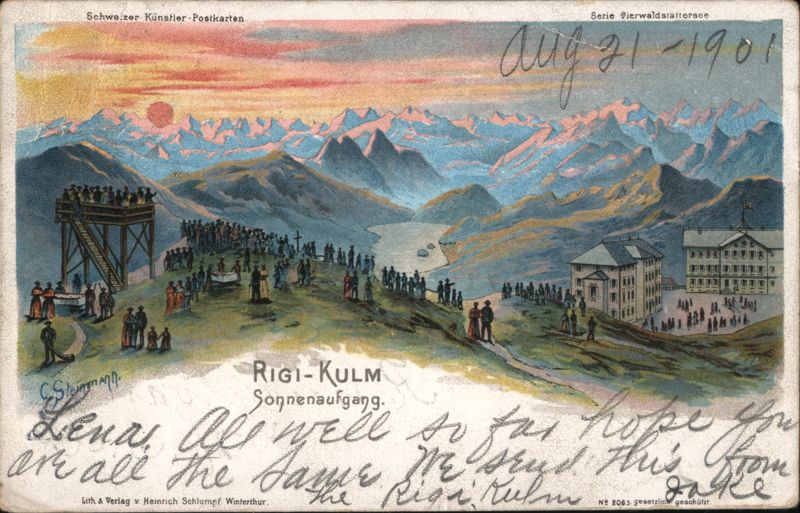 Schweizer Künstler-Postkarten
Serie Vierwaldstättersee
Aug 21-1901
C. Steinmann.
RIGI-KULM
Sonnenaufgang.
Lena. All well so far hope you
are all the same. We send this from
the Rigi Kulm Jake
Lith. & Verlag v. Heinrich Schlumpf Winterthur.
No 2063 gesetzlich geschützt.